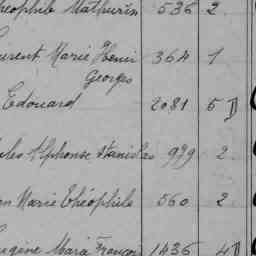 éophile Mathurin 536 2
urent Marie Henri 364 1
Georges
Edouard 2081 5
ules Alphonse Stanislas 979 2
en Marie Théophile 560 2
ugène Marie François 1436 4